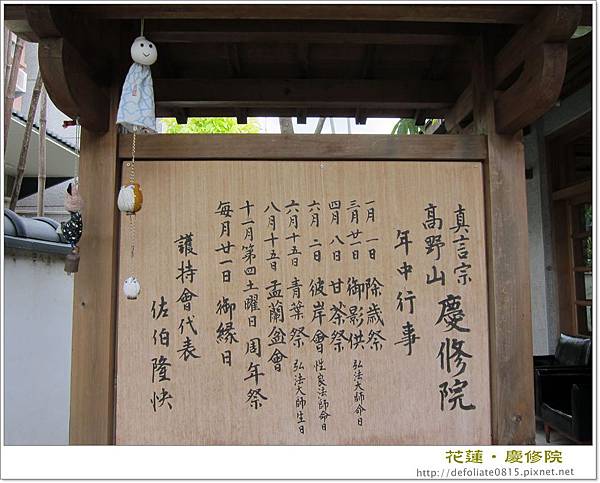 真言宗
高野山 慶修院
年中行事
一月一日 除歲祭
三月廿一日 御影供 弘法大師命日
四月八日 甘茶祭
六月二日 彼岸會 性良法師命日
六月十五日 青葉祭 弘法大師生日
八月十五日 盂蘭盆會
十一月第四土曜日 周年祭
每月廿一日 御緣日
護持會代表
佐伯隆快
花蓮・慶修院
http://defoliate0815.pixnet.net